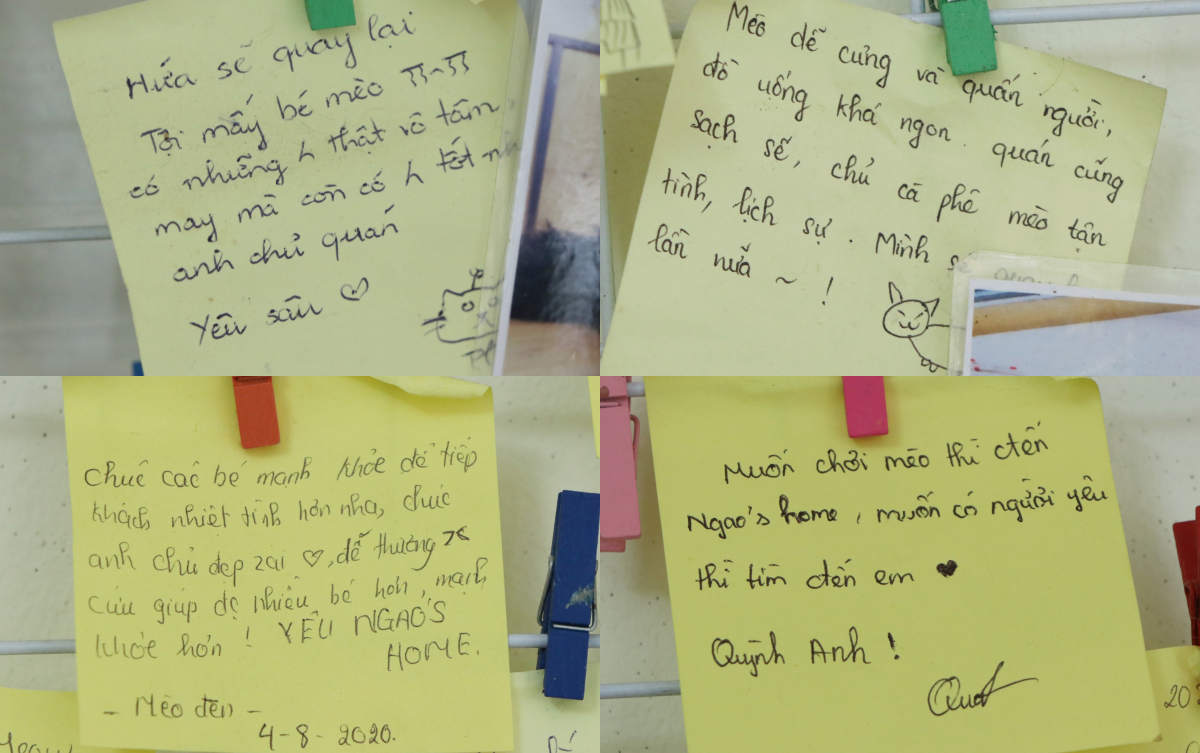 Hứa sẽ quay lại
Tội mấy bé mèo ㅠ~ㅠ
có những h thật vô tâm
may mà còn có h tốt như
anh chủ quán
Yêu sâu ♡
Mèo dễ cưng và quấn người,
đồ uống khá ngon. quán cũng
sạch sẽ, chủ cà phê mèo tận
tình, lịch sự. Mình sẽ
lần nữa ~ !
Chúc các bé mạnh khỏe để tiếp
khách nhiệt tình hơn nha, chúc
anh chủ đẹp zai ♡, dễ thương
cứu giúp đc nhiều bé hơn, mạnh
khỏe hơn ! YÊU NGAO'S
HOME.
- Mèo đen -
4-8-2020.
Muốn chơi mèo thì đến
Ngao's home, muốn có người yêu
thì tìm đến em ♥
Quỳnh Anh !
202